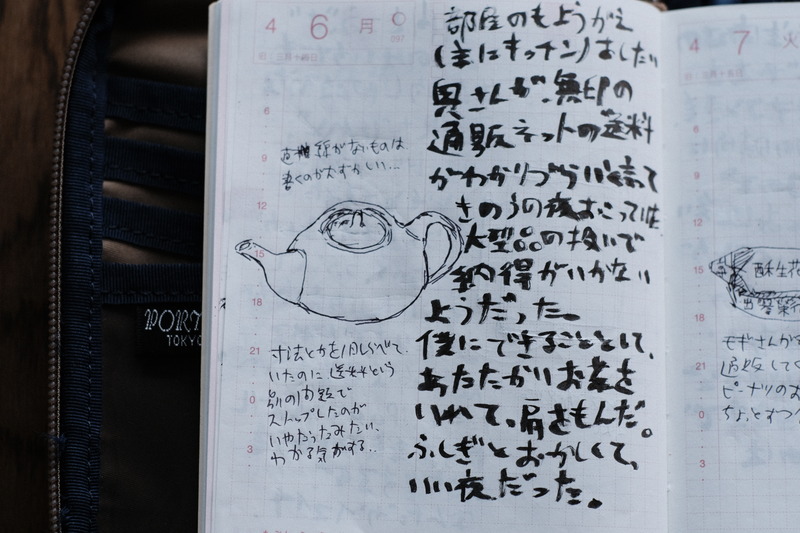 4 6 月
旧:三月十四日
097
部屋のもようがえ
(主にキッチン)をしたい
奥さんが、無印の
通販ネットの送料
がわかりづらいと言って
きのうの夜おこっていた
大型品の扱いで
納得がいかない
ようだった。
僕にできることとして、
あたたかいお茶を
いれて、肩をもんだ。
ふしぎとおかしくて、
いい夜だった。
直線がないものは
書くのがむずかしい…
寸法とかを1月しらべて
いたのに送料という
別の内題で
ストップしたのが
いやだったみたい、
わかる気がする…
6
9
12
15
18
21
0
3
PORT
TOKYO
4 7 火
旧:三月十五日
6
9
12
15
18
21
0
3
酥生花
モギさんがす
通販して
ピーナツのお
ちょっとずつ